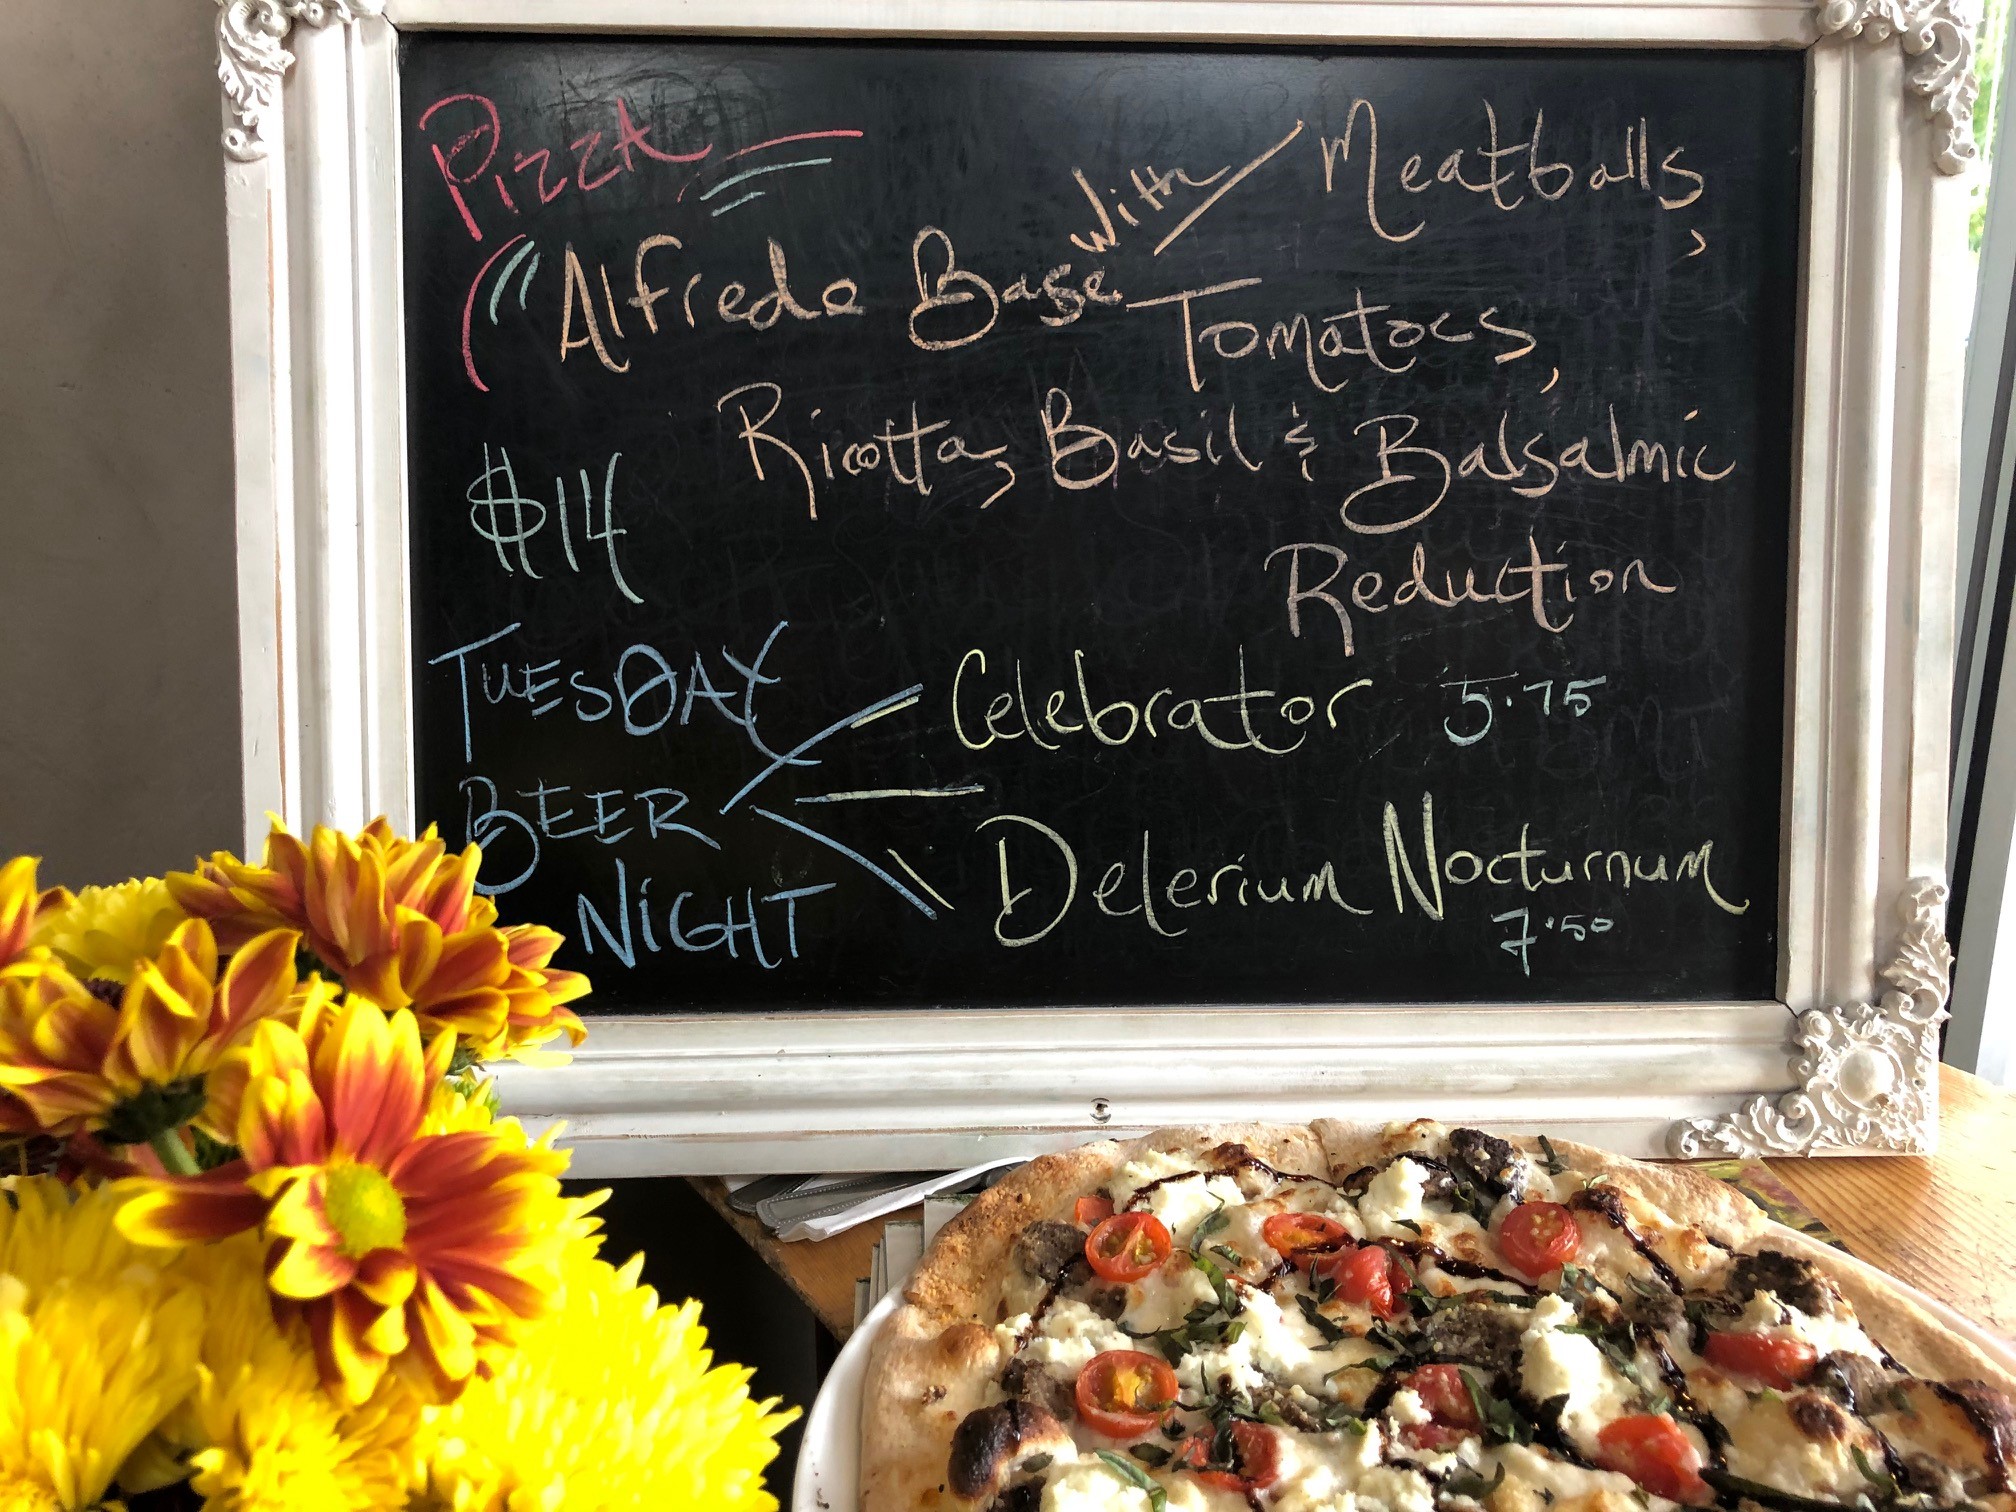 PIZZA
Alfredo Base with Meatballs,
Tomatoes,
Ricotta, Basil & Balsalmic
Reduction
$14
TUESDAY
BEER
NIGHT
Celebrator 5.75
Delerium Nocturnum
7.50